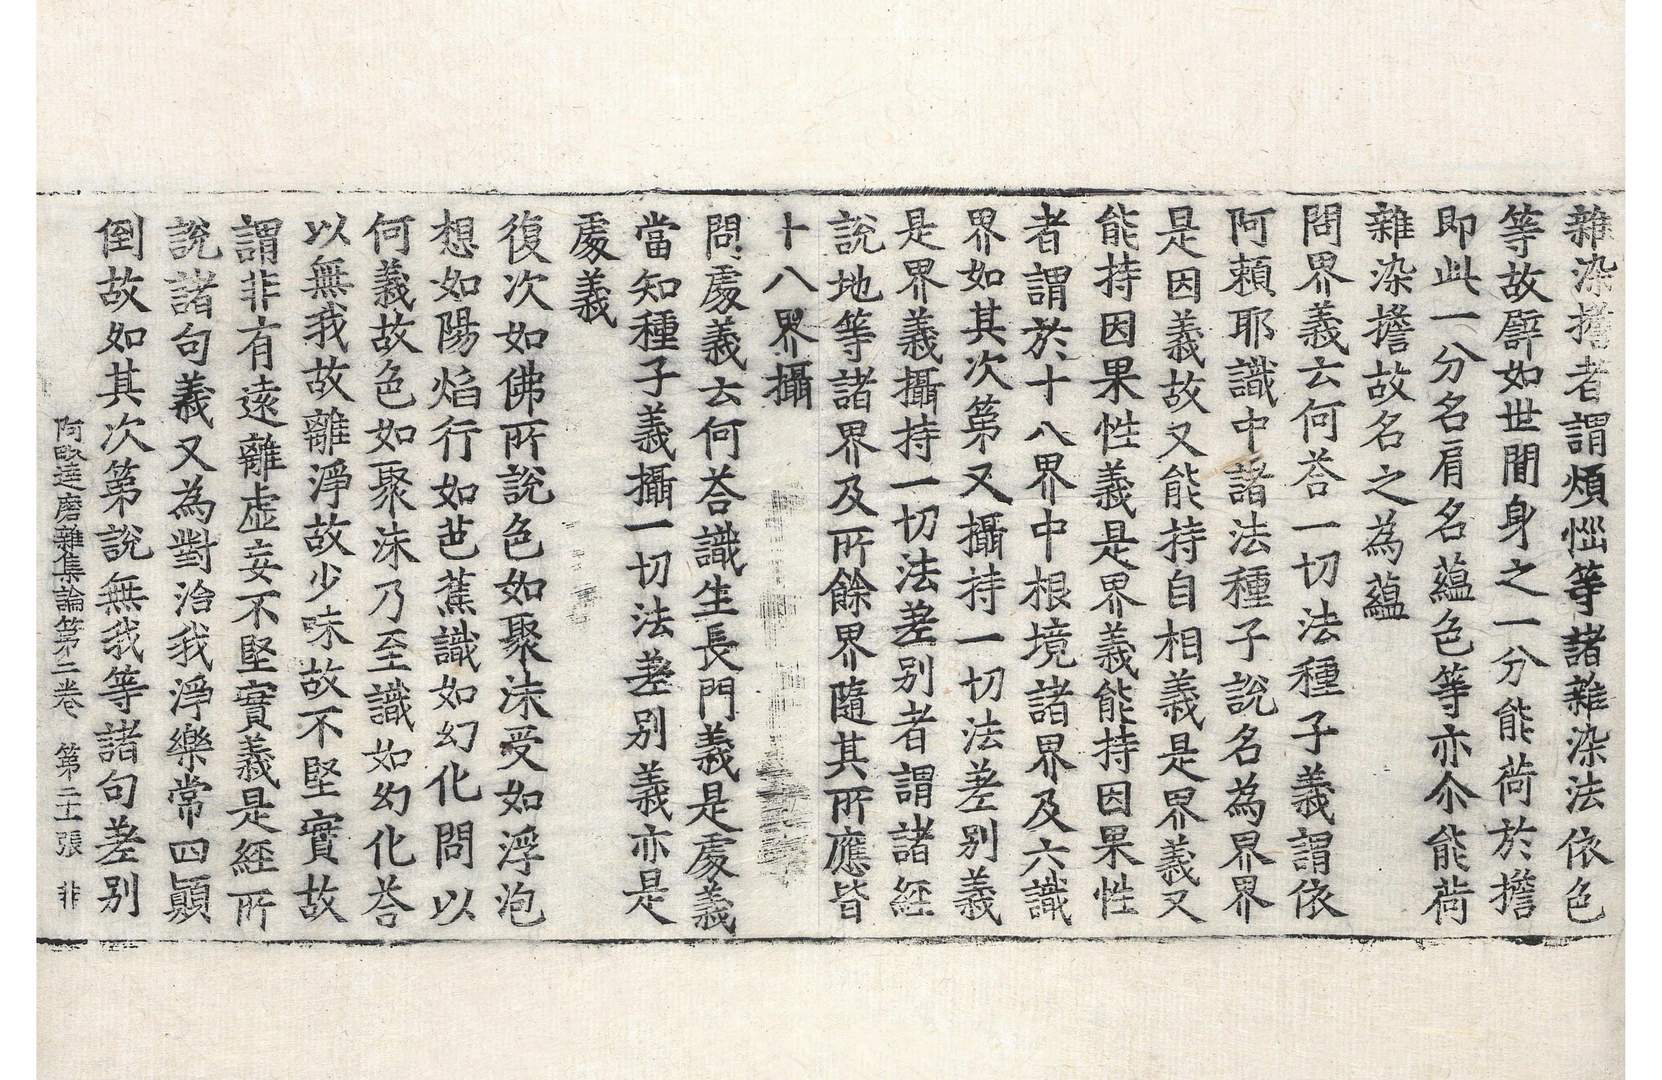 雜染擔者謂煩惱等諸雜染法依色
等故譬如世間身之一分能荷於擔
即此一分名肩名蘊色等亦尒能荷
雜染擔故名之為蘊
問界義云何荅一切法種子義謂依
阿頼耶識中諸法種子說名為界界
是因義故又能持自相義是界義又
能持因果性義是界義能持因果性
者謂於十八界中根境諸界及六識
界如其次第又攝持一切法差别義
是界義攝持一切法差别者謂諸經
說地等諸界及所餘界隨其所應皆
十八界攝
問處義云何荅識生長門義是處義
當知種子義攝一切法差别義亦是
處義
復次如佛所說色如聚沫受如浮泡
想如陽焰行如芭蕉識如幻化問以
何義故色如聚沫乃至識如幻化荅
以無我故離淨故少味故不堅實故
謂非有遠離虛妄不堅實義是經所
說諸句義又為對治我淨樂常四顛
倒故如其次第說無我等諸句差别
阿毗達磨雜集論第二卷 第二十張 非